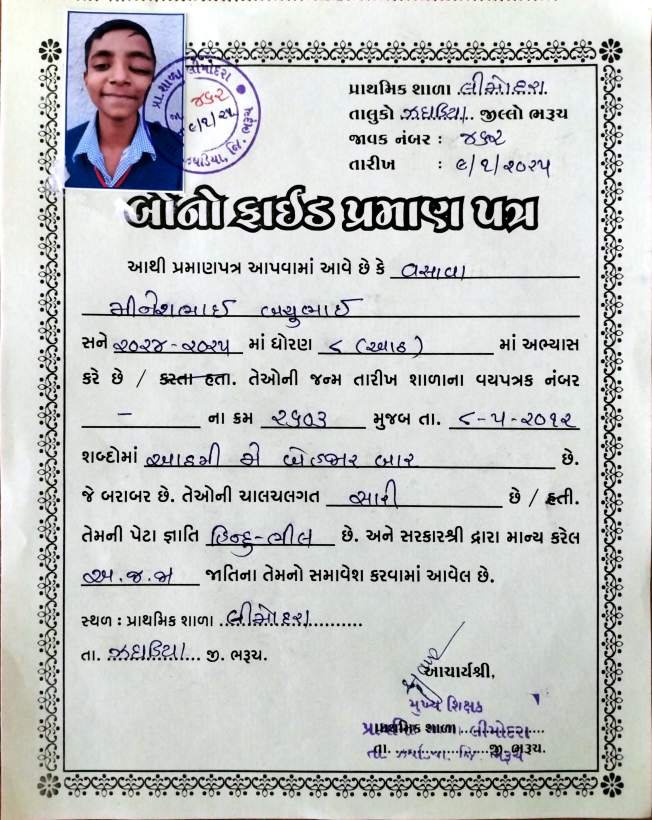 પ્રા. શાળા લીમોદરા
જ૬૨
૯/૧/૨૫
પ્રાથમિક શાળા લીમોદરા
તાલુકો ઝઘડિયા. જીલ્લો ભરૂચ
જાવક નંબર :
તારીખ : ૯/૧/૨૦૨૫
બોનોફાઈડ પ્રમાણ પત્ર
આથી પ્રમાણપત્ર આપવામાં આવે છે કે વસાવા
મીનેશભાઈ બચુભાઈ
સને ૨૦૨૪-૨૦૨૫ માં ધોરણ ૮ (આઠ) માં અભ્યાસ
કરે છે / કરતા હતા. તેઓની જન્મ તારીખ શાળાના વયપત્રક નંબર
– ના ક્રમ ૨૬૦૩ મુજબ તા. ૮-૫-૨૦૧૨
શબ્દોમાં આઠમી મે બે હજાર બાર છે.
જે બરાબર છે. તેઓની ચાલચલગત સારી છે / હતી.
તેમની પેટા જ્ઞાતિ હિન્દુ-ભીલ છે. અને સરકારશ્રી દ્રારા માન્ય કરેલ
અ.જ.જા જાતિના તેમનો સમાવેશ કરવામાં આવેલ છે.
સ્થળ : પ્રાથમિક શાળા લીમોદરા
તા. ઝઘડિયા જી. ભરૂચ.
આચાર્યશ્રી,
મુખ્ય શિક્ષક
પ્રાથમિક શાળા લીમોદરા
તા. જી. ભરૂચ.